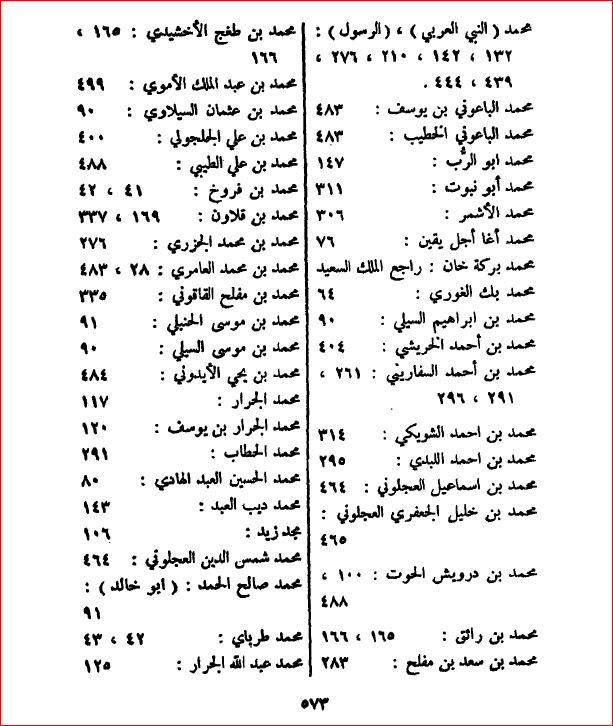 محمد ( النبي العربي ) ، ( الرسول ) :
١٣٢ ، ١٤٢ ، ٢١٠ ، ٢٧٦ ،
٤٣٩ ، ٤٤٤ .
محمد الباعوني بن يوسف : ٤٨٣
محمد الباعوني الخطيب : ٤٨٣
محمد ابو الرُّب : ١٤٧
محمد أبو نبوت : ٣١١
محمد الأشمر : ٣٠٦
محمد أغا أجل يقين : ٧٦
محمد بركة خان : راجع الملك السعيد
محمد بك الغوري : ٦٤
محمد بن ابراهيم السيلي : ٩٠
محمد بن أحمد الخريشي : ٤٠٤
محمد بن أحمد السفاريني : ٢٦١ ،
٢٩١ ، ٢٩٦
محمد بن احمد الشويكي : ٣١٤
محمد بن احمد اللبدي : ٢٩٥
محمد بن اسماعيل العجلوني : ٤٦٤
محمد بن خليل الجعفري العجلوني :
٤٦٥
محمد بن درويش الحوت : ١٠٠ ،
٤٨٨
محمد بن رائق : ١٦٥ ، ١٦٦
محمد بن سعد بن مفلح : ٢٨٣
محمد بن طغج الأخشيدي : ١٦٥ ،
١٦٦
محمد بن عبد الملك الأموي : ٤٩٩
محمد بن عثمان السيلاوي : ٩٠
محمد بن علي الجلجولي : ٤٠٠
محمد بن علي الطيبي : ٤٨٨
محمد بن فروخ : ٤١ ، ٤٢
محمد بن قلاون : ١٦٩ ، ٣٣٧
محمد بن محمد الجزري : ٢٧٦
محمد بن محمد العامري : ٢٨ ، ٤٨٣
محمد بن مفلح القاقوني : ٣٣٥
محمد بن موسى الحنبلي : ٩١
محمد بن موسى السيلي : ٩٠
محمد بن يحي الأيدوني : ٤٨٤
محمد الجرار : ١١٧
محمد الجرار بن يوسف : ١٢٠
محمد الحطاب : ٢٩١
محمد الحسين العبد الهادي : ٨٠
محمد ديب العبد : ١٤٣
مجد زيد : ١٠٦
محمد شمس الدين العجلوني : ٤٦٤
محمد صالح الحمد : ( ابو خالد ) :
٩١
محمد طرباي : ٤٢ ، ٤٣
محمد عبد الله الجرار : ١٢٥
٥٧٣